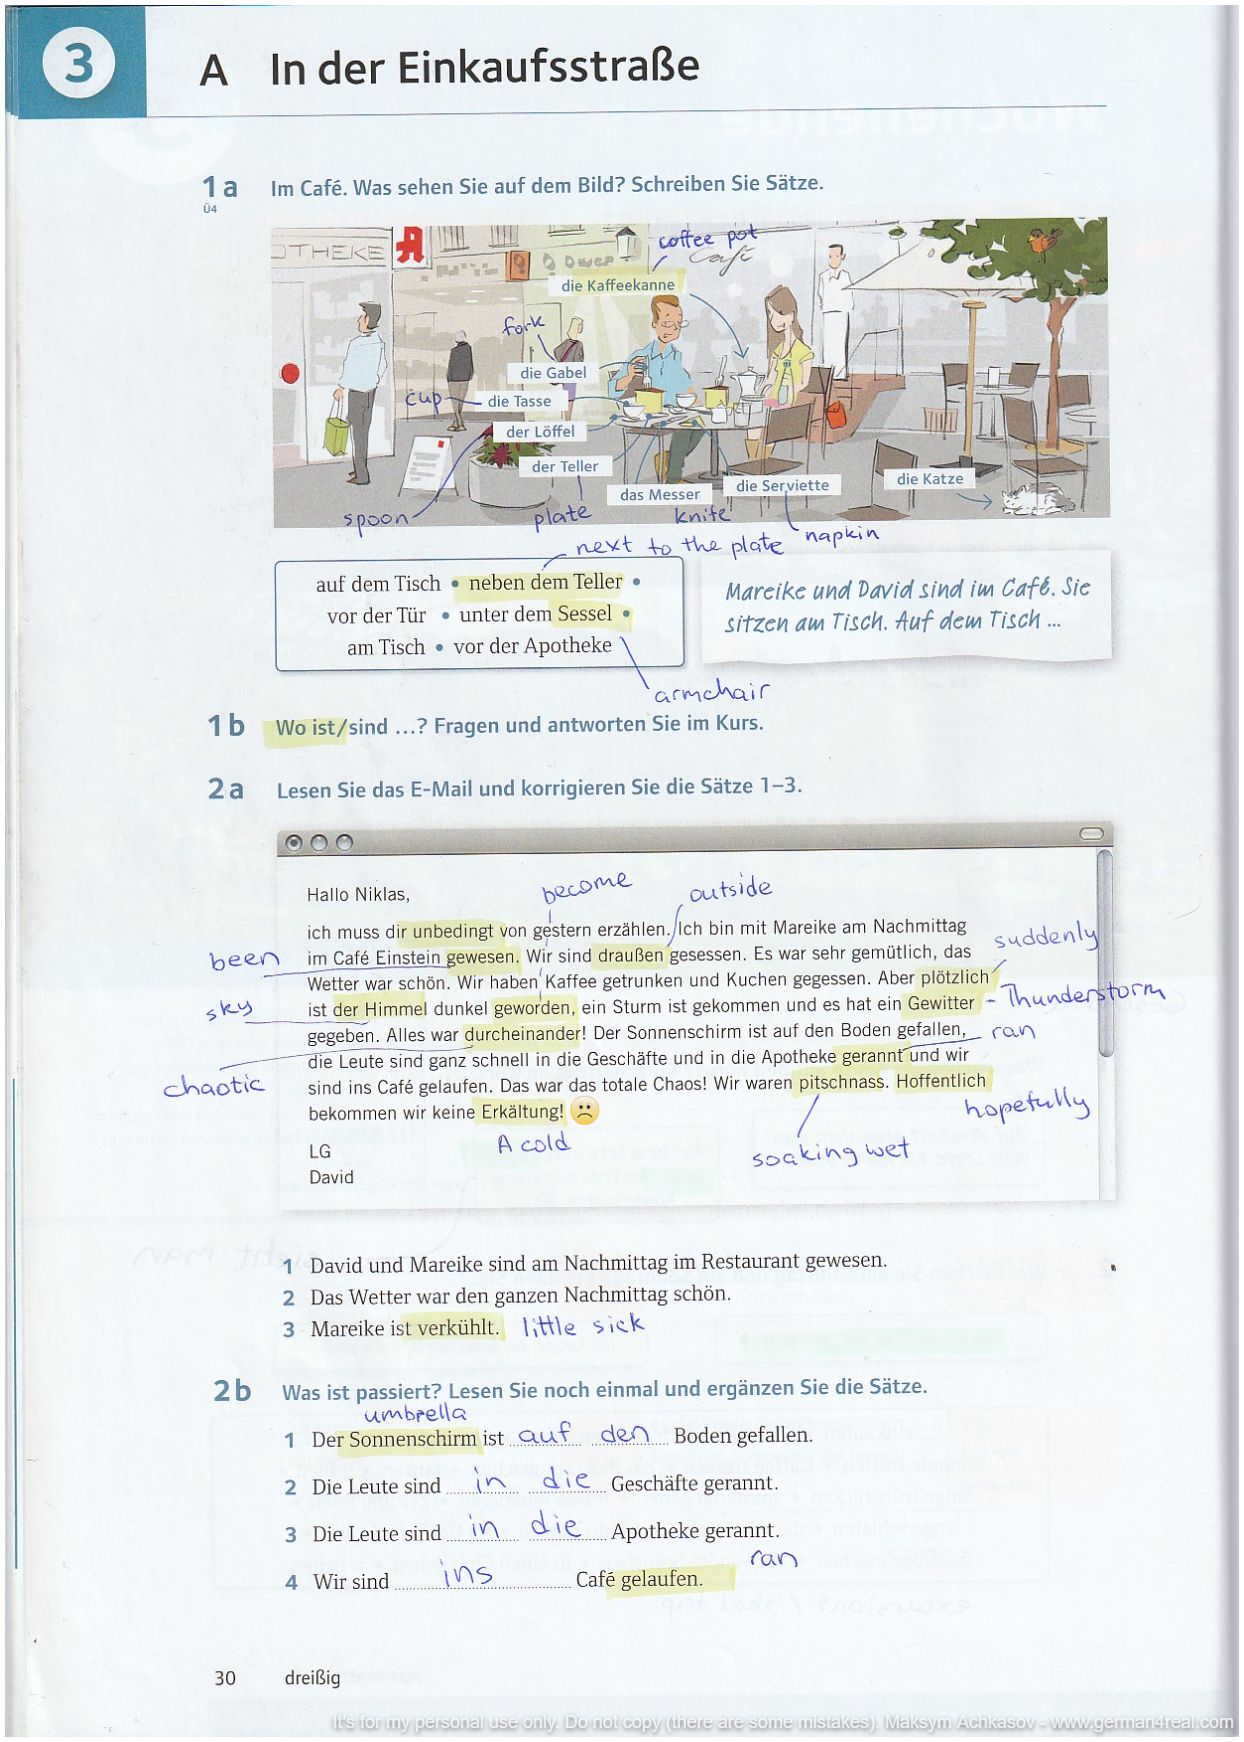 3
A In der Einkaufsstraße
1a Im Café. Was sehen Sie auf dem Bild? Schreiben Sie Sätze.
Ü4
OTHEKE
coffee pot
Café
die Kaffeekanne
fork
die Gabel
cup
die Tasse
der Löffel
der Teller
das Messer
die Serviette
die Katze
spoon
plate
knife
napkin
next to the plate
auf dem Tisch • neben dem Teller •
vor der Tür • unter dem Sessel •
am Tisch • vor der Apotheke
armchair
Mareike und David sind im Café. Sie
sitzen am Tisch. Auf dem Tisch ...
1b Wo ist/sind ...? Fragen und antworten Sie im Kurs.
2a Lesen Sie das E-Mail und korrigieren Sie die Sätze 1–3.
Hallo Niklas,
become
outside
ich muss dir unbedingt von gestern erzählen. Ich bin mit Mareike am Nachmittag
suddenly
been
im Café Einstein gewesen. Wir sind draußen gesessen. Es war sehr gemütlich, das
Wetter war schön. Wir haben Kaffee getrunken und Kuchen gegessen. Aber plötzlich
sky
ist der Himmel dunkel geworden, ein Sturm ist gekommen und es hat ein Gewitter
- Thunderstorm
gegeben. Alles war durcheinander! Der Sonnenschirm ist auf den Boden gefallen,
ran
die Leute sind ganz schnell in die Geschäfte und in die Apotheke gerannt und wir
chaotic
sind ins Café gelaufen. Das war das totale Chaos! Wir waren pitschnass. Hoffentlich
hopefully
bekommen wir keine Erkältung!
A cold
soaking wet
LG
David
1 David und Mareike sind am Nachmittag im Restaurant gewesen.
2 Das Wetter war den ganzen Nachmittag schön.
3 Mareike ist verkühlt. little sick
2b Was ist passiert? Lesen Sie noch einmal und ergänzen Sie die Sätze.
umbrella
1 Der Sonnenschirm ist auf den Boden gefallen.
2 Die Leute sind in die Geschäfte gerannt.
3 Die Leute sind in die Apotheke gerannt.
ran
4 Wir sind ins Café gelaufen.
30 dreißig
It's for my personal use only. Do not copy (there are some mistakes). Maksym Achkasov - www.german4real.com